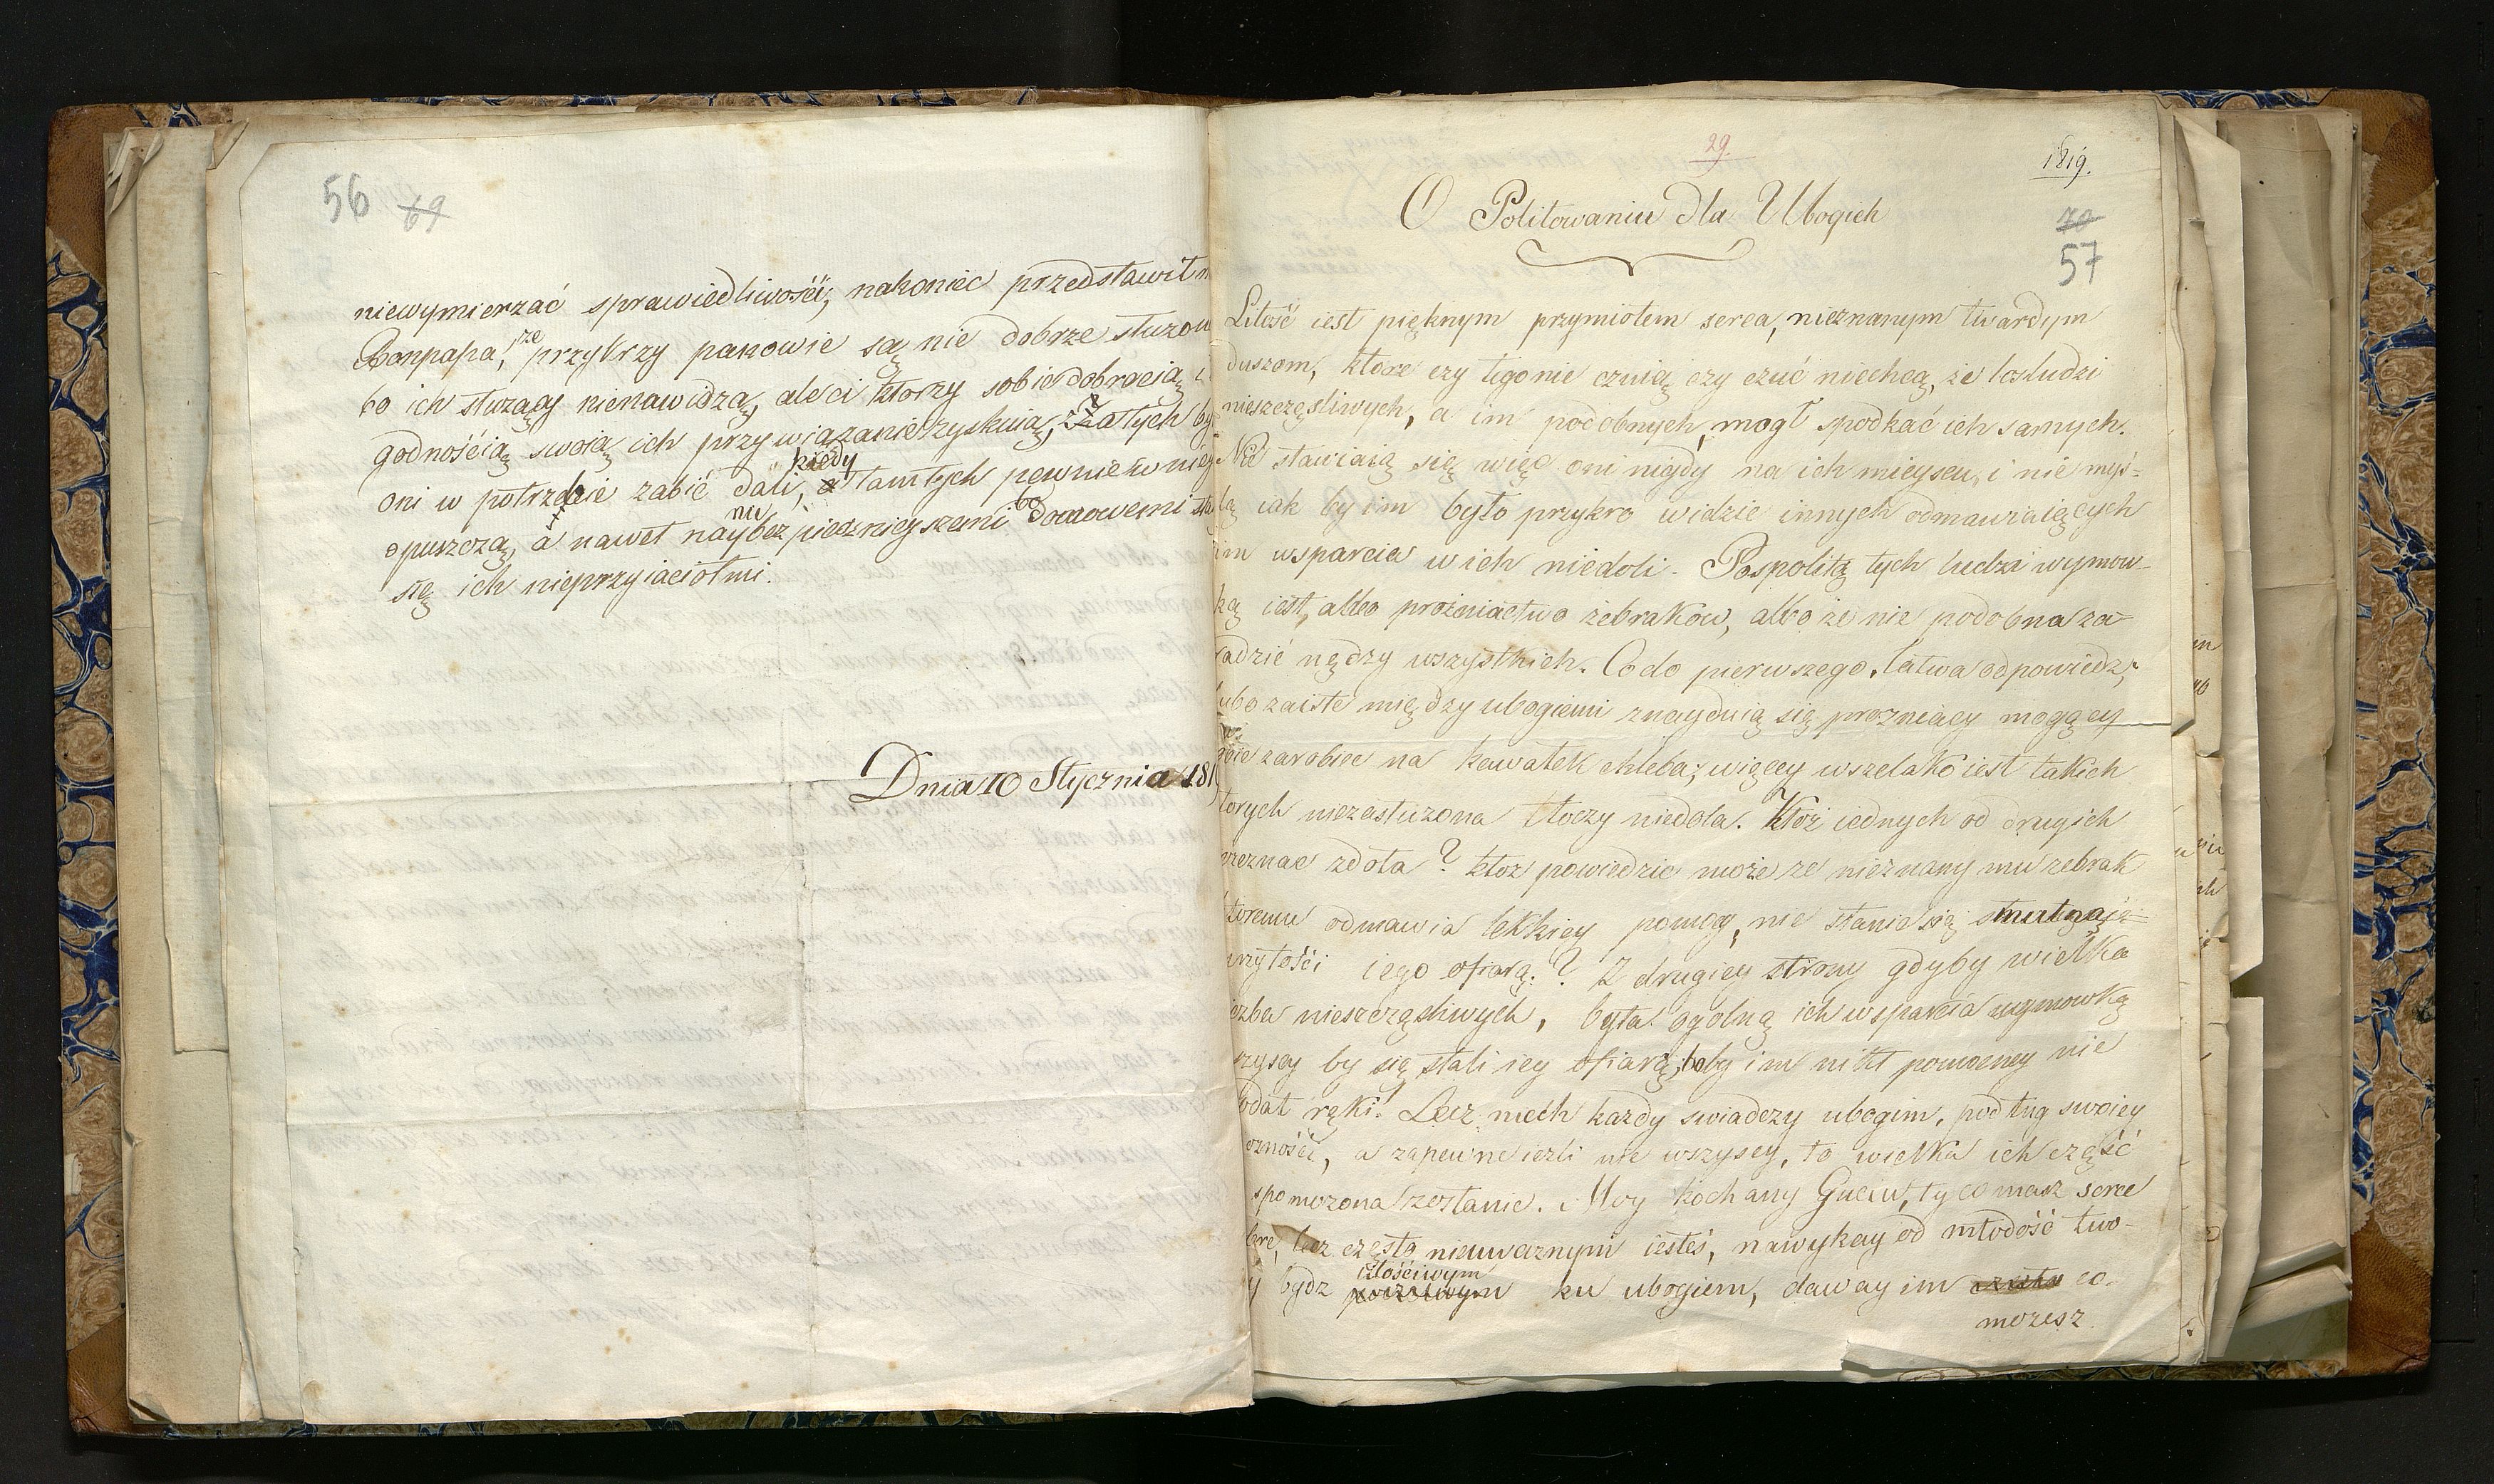 56 69
niewymierzać sprawiedliwości; nakoniec przedstawił
Bonpapa, że przykrzy panowie są nie dobrze służon
bo ich służący nienawidzą, ale ci ktorzy sobie dobrocią
godnością swoią ich przywiązanie zyskuią, za tych by
oni w potrzebie zabić dali, kiedy tamtych pewnie w nie
opuszczą, a nawet naybezpiecznieyszemi bo domowemi sta
się ich nieprzyiaciołmi.
Dnia 10 Stycznia 181
29.
1819.
O Politowaniu dla Ubogich
70
57
Litość iest pięknym przymiotem serca, nieznanym twardym
duszom, ktore czy tego nie czuią czy czuć niechcą, ze los ludzi
nieszczęsliwych, a im podobnych, mogł spodkać ich samych.
Nie stawiaią się więc oni nigdy na ich mieyscu, i nie myś-
lą iak by im było przykro widzic innych odmawiaiących
im wsparcia w ich niedoli. Pospolitą tych ludzi wymow-
ką iest, albo prożniactwo żebrakow, albo że nie podobna za-
radzić nędzy wszystkich. Co do pierwszego, łatwa odpowiedz;
lubo zaiste między ubogiemi znayduią się prozniacy mogący
sobie zarobic na kawałek chleba; więcey wszelako iest takich
torych niezasłuzona tłoczy niedola. Ktoż iednych od drugich
zdoła? ktoz powiedzic może ze nieznany mu zebrak
toremu odmawia lekkiey pomocy, nie stanie się smutną ie-
iego ofiarą.? Z drugiey strony gdyby wielka
iczba nieszczęsliwych, była ogólną ich wsparcia wymowką
szyscy by się stali iey ofiarą; boby im nikt pomocney nie
odał ręki! Lecz niech kazdy swiadczy ubogim, podług swoiey
ożności, a zapewne iezli nie wszyscy, to wielka ich część
spomożona zostanie. Moy kochany Guciu, ty co masz serce
bre, lecz często nieuwaznym iesteś, nawykay od młodość two-
y bydz litościwym ku ubogiem, daway im co
mozesz